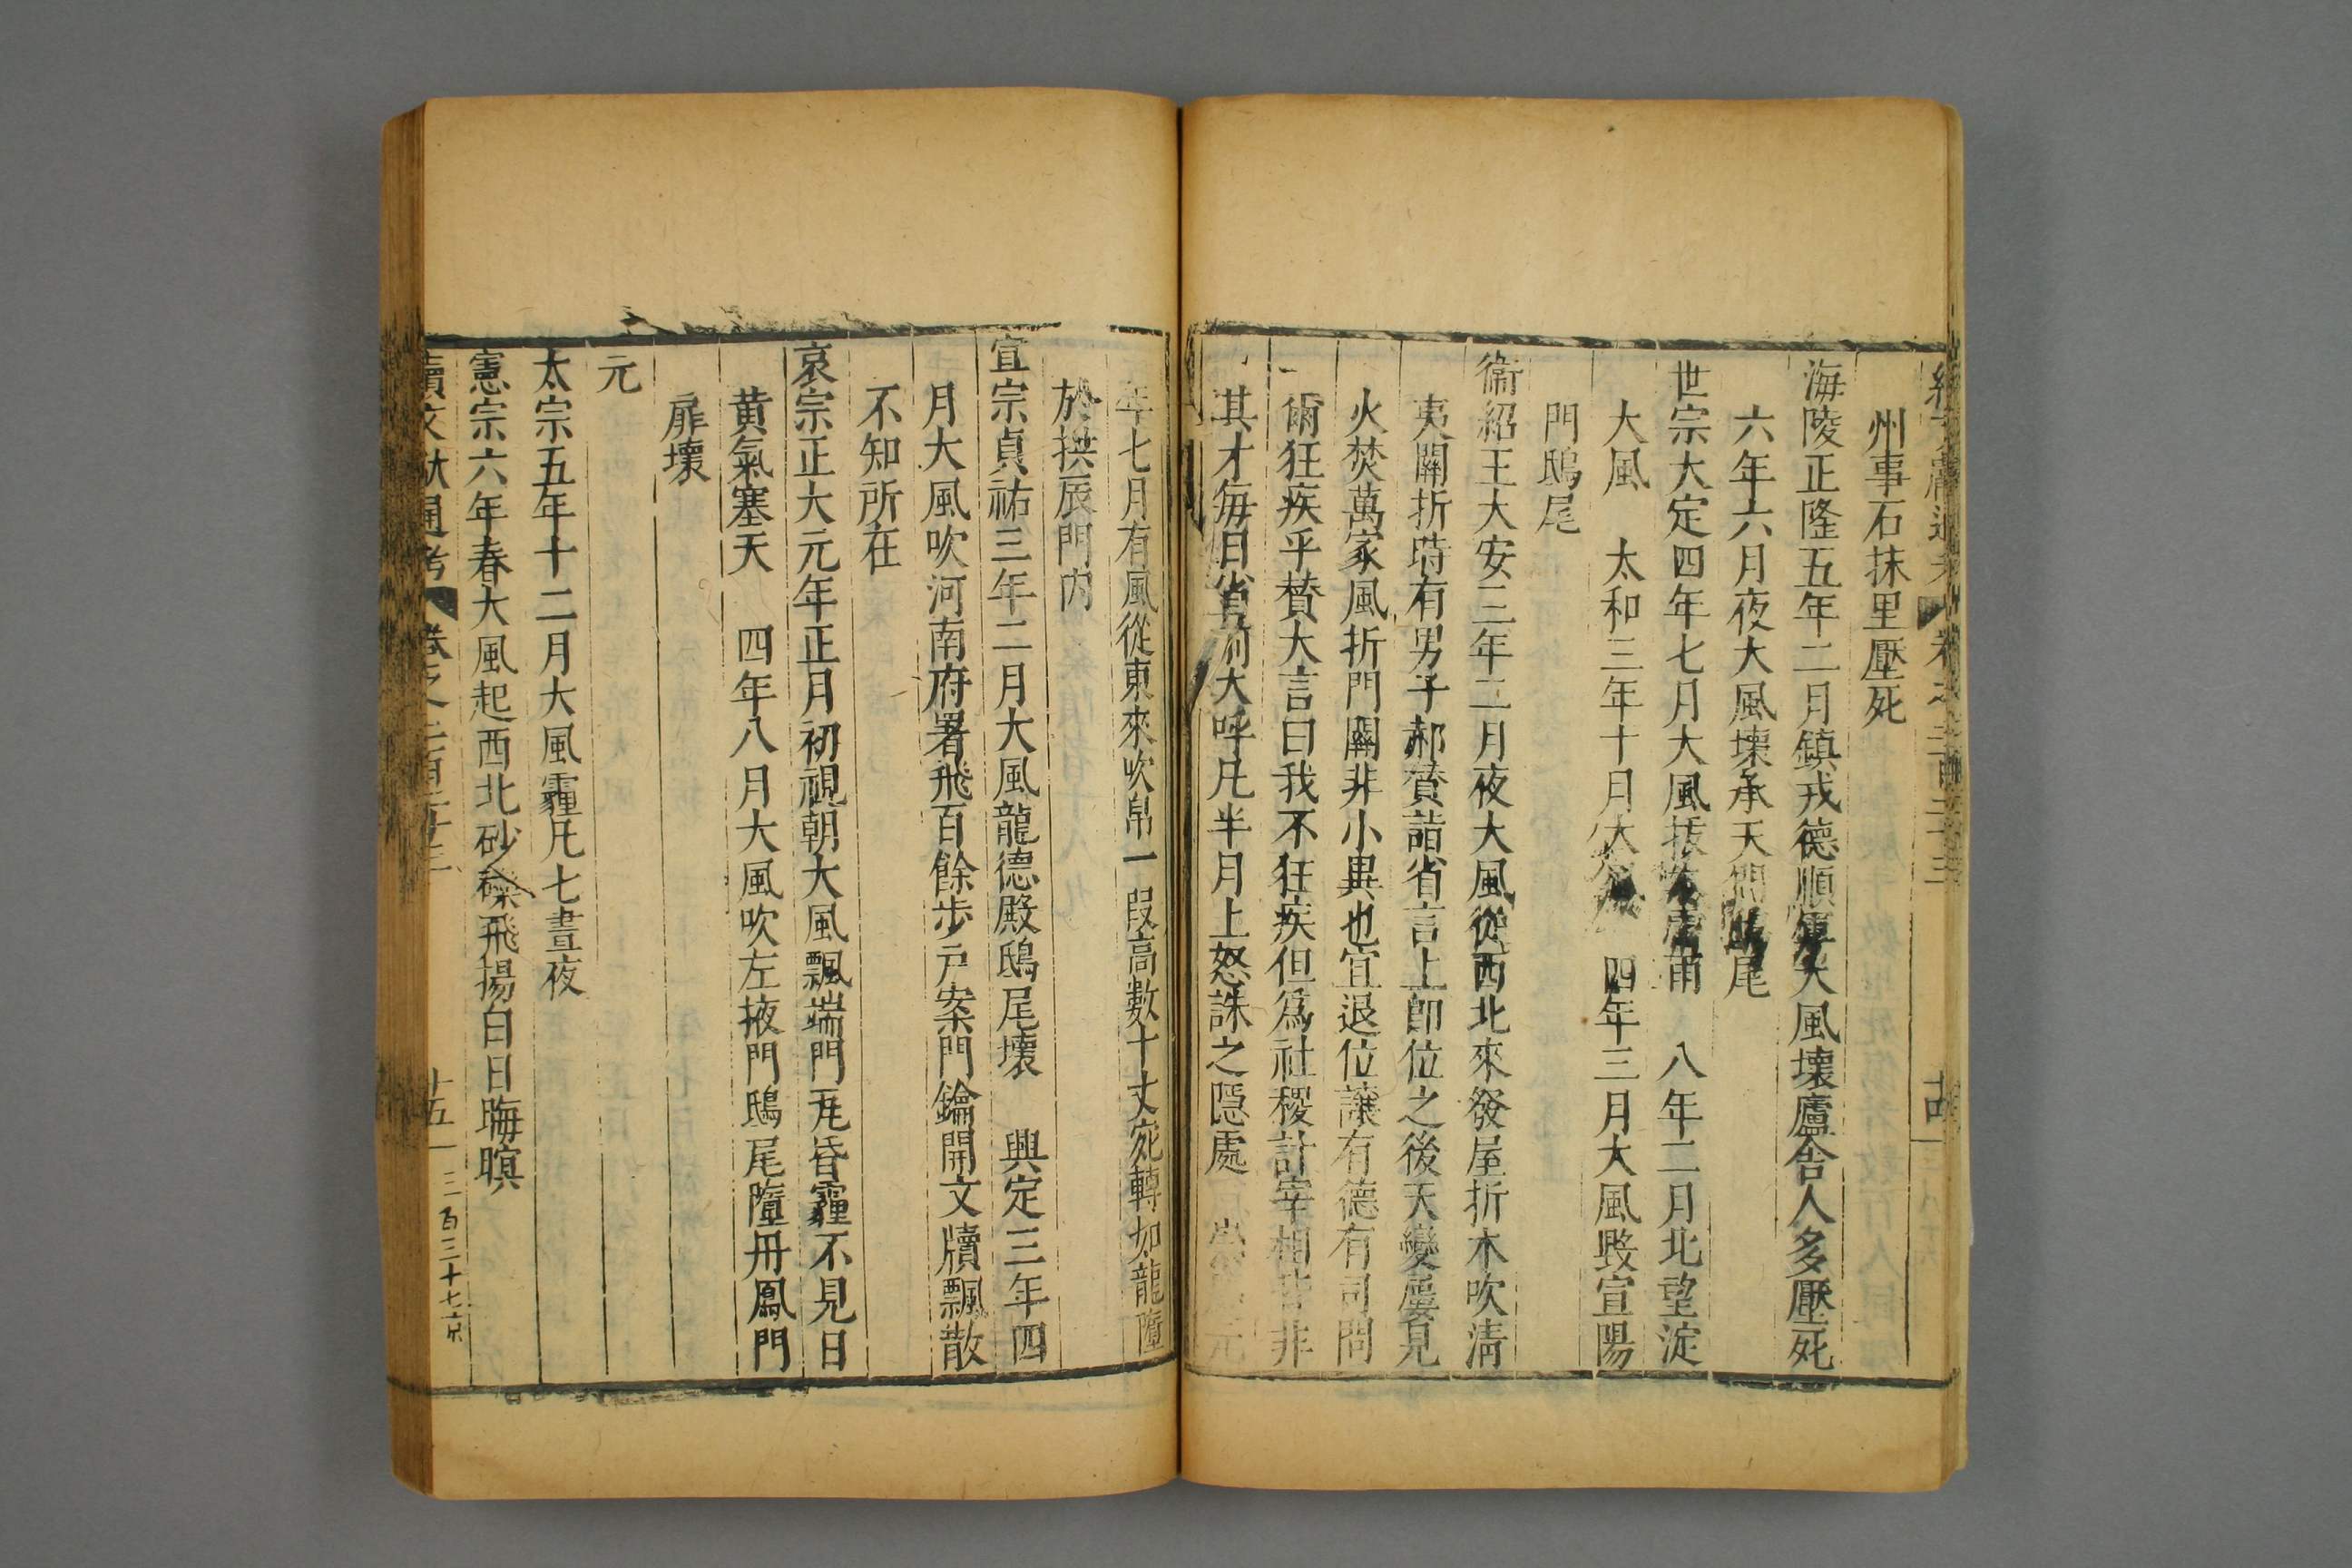 州事石抹里壓死
海陵正隆五年二月鎮戎德順軍大風壞廬舍人多壓死
六年六月夜大風壞承天門鴟尾
世宗大定四年七月大風 八年二月北望淀
大風 太和三年十月大風 四年三月大風毀宣陽
門鴟尾
衞紹王大安三年二月夜大風從西北來發屋折木吹淸
夷關折時有男子郝賛詣省言上卽位之後天變屢見
火焚萬家風折門關非小異也宜退位讓有德有司問
爾狂疾乎賛大言曰我不狂疾但爲社稷計宰相皆非
其才每日省前大呼凡半月上怒誅之隱處 元
年七月有風從東來吹帛一段高數十丈宛轉如龍墮
於拱辰門内
宣宗貞祐三年二月大風龍德殿鴟尾壞 興定三年四
月大風吹河南府署飛百餘步戸案門鑰開文牘飄散
不知所在
哀宗正大元年正月初視朝大風飄端門瓦昏霾不見日
黃氣塞天 四年八月大風吹左掖門鴟尾墮丹鳳門
扉壞
元
太宗五年十二月大風霾凡七晝夜
憲宗六年春大風起西北砂礫飛揚白日晦暝
續文獻通考 卷之二百二十三 十五 三百三十七